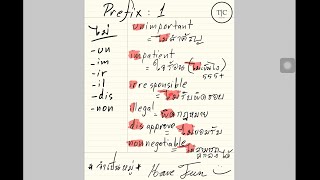 Prefix : 1
TJC
ไม่
-un
-im
-ir
-il
-dis
-non
unimportant
= ไม่สำคัญ
impatient
= ใจร้อน (ไม่
555+
irresponsible
= ไม่รับผิดชอบ
illegal
= ผิดกฎหมาย
disapprove
= ไม่ยอมรับ
nonnegotiable
Have Fun